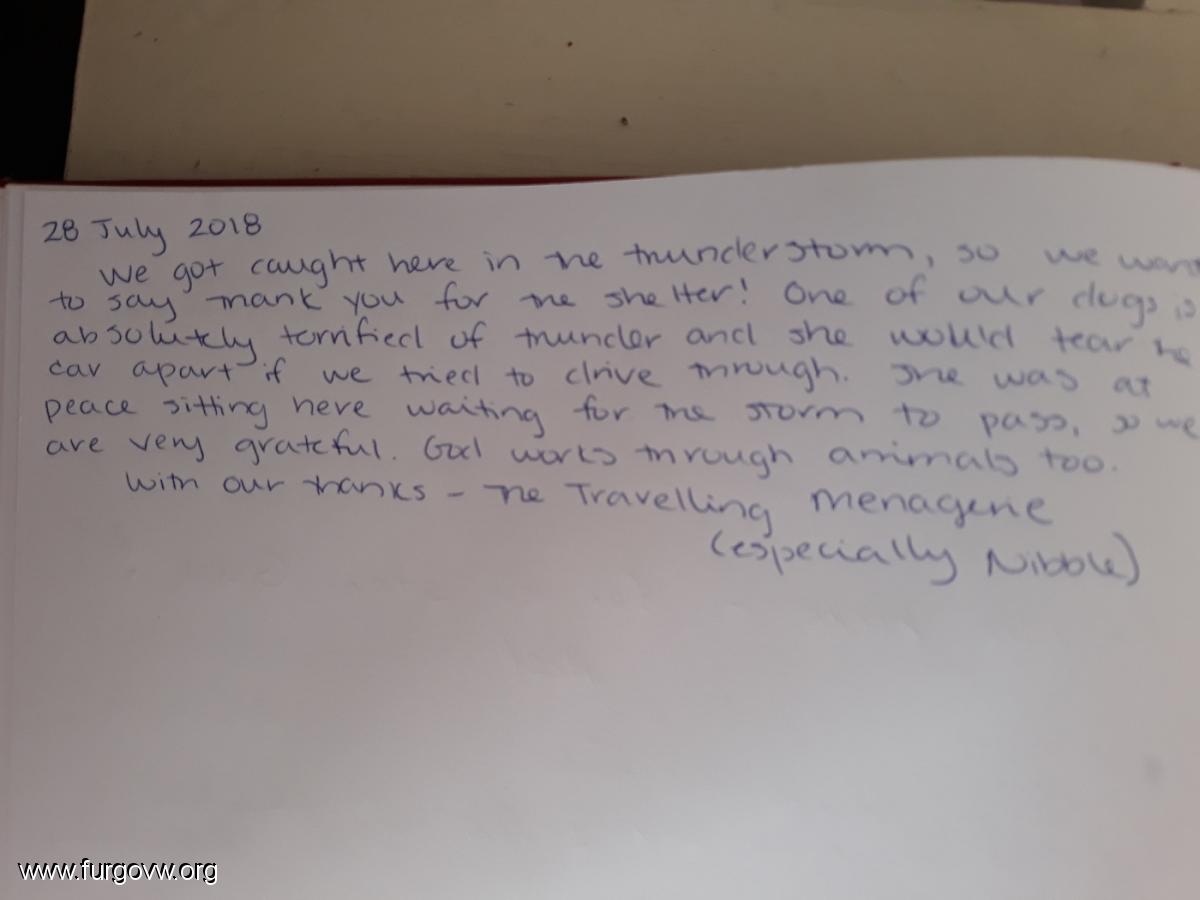 28 July 2018
We got caught here in the thunderstorm, so we want
to say thank you for the shelter! One of our dogs is
absolutely terrified of thunder and she would tear the
car apart if we tried to drive through. She was at
peace sitting here waiting for the storm to pass, so we
are very grateful. God works through animals too.
With our thanks - The Travelling Menagerie
(especially Nibble)
www.furgovw.org